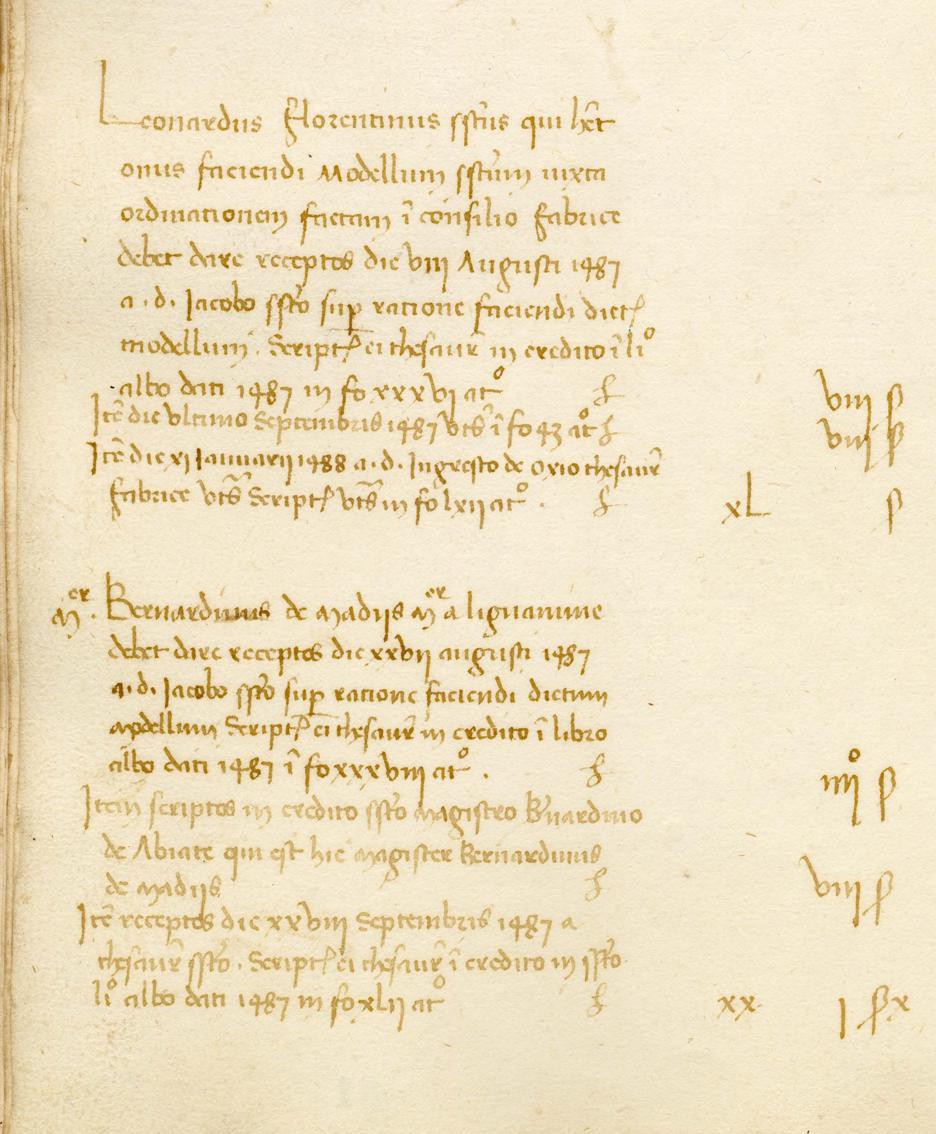 Leonardus Florentinus sstus qui het
onus faciendi Modellum sstum iuxta
ordinationem factam ī consilio Fabrice
debet dare receptos die viij Augusti 1487
a . d . Jacobo ssto sup ratione faciendi dict
modellum . Script ei thesaur in credito ī liº
albo dati 1487 in fo xxxvj atº ł viij ß
Itē die ultimo Septembris 1487 vts ī fo 43 at ł viij ß
Itē die xj Januarij 1488 a . d . Ingresto de oxio thesaur
fabrice vts Script vts in fo lxij atº . ł xL ß
Mer . Bernardinus de Madijs Mer a lignamine
debet dare receptos die xxvij augusti 1487
a . d . Jacobo ssto sup ratione faciendi dictum
modellum Script ei thesaur in credito ī libro
albo dati 1487 ī fo xxxviij atº . ł iiijº ß
Item scriptos in credito ssto Magistro Bnardino
de Abiate qui est hic Magister Bernardinus
de Madijs ł viij ß
Itē receptos die xxviij Septembris 1487 a
thesaur ssto . Script ei thesaur ī credito in ssto
liº albo dati 1487 in fo xlij atº ł xx j ß x